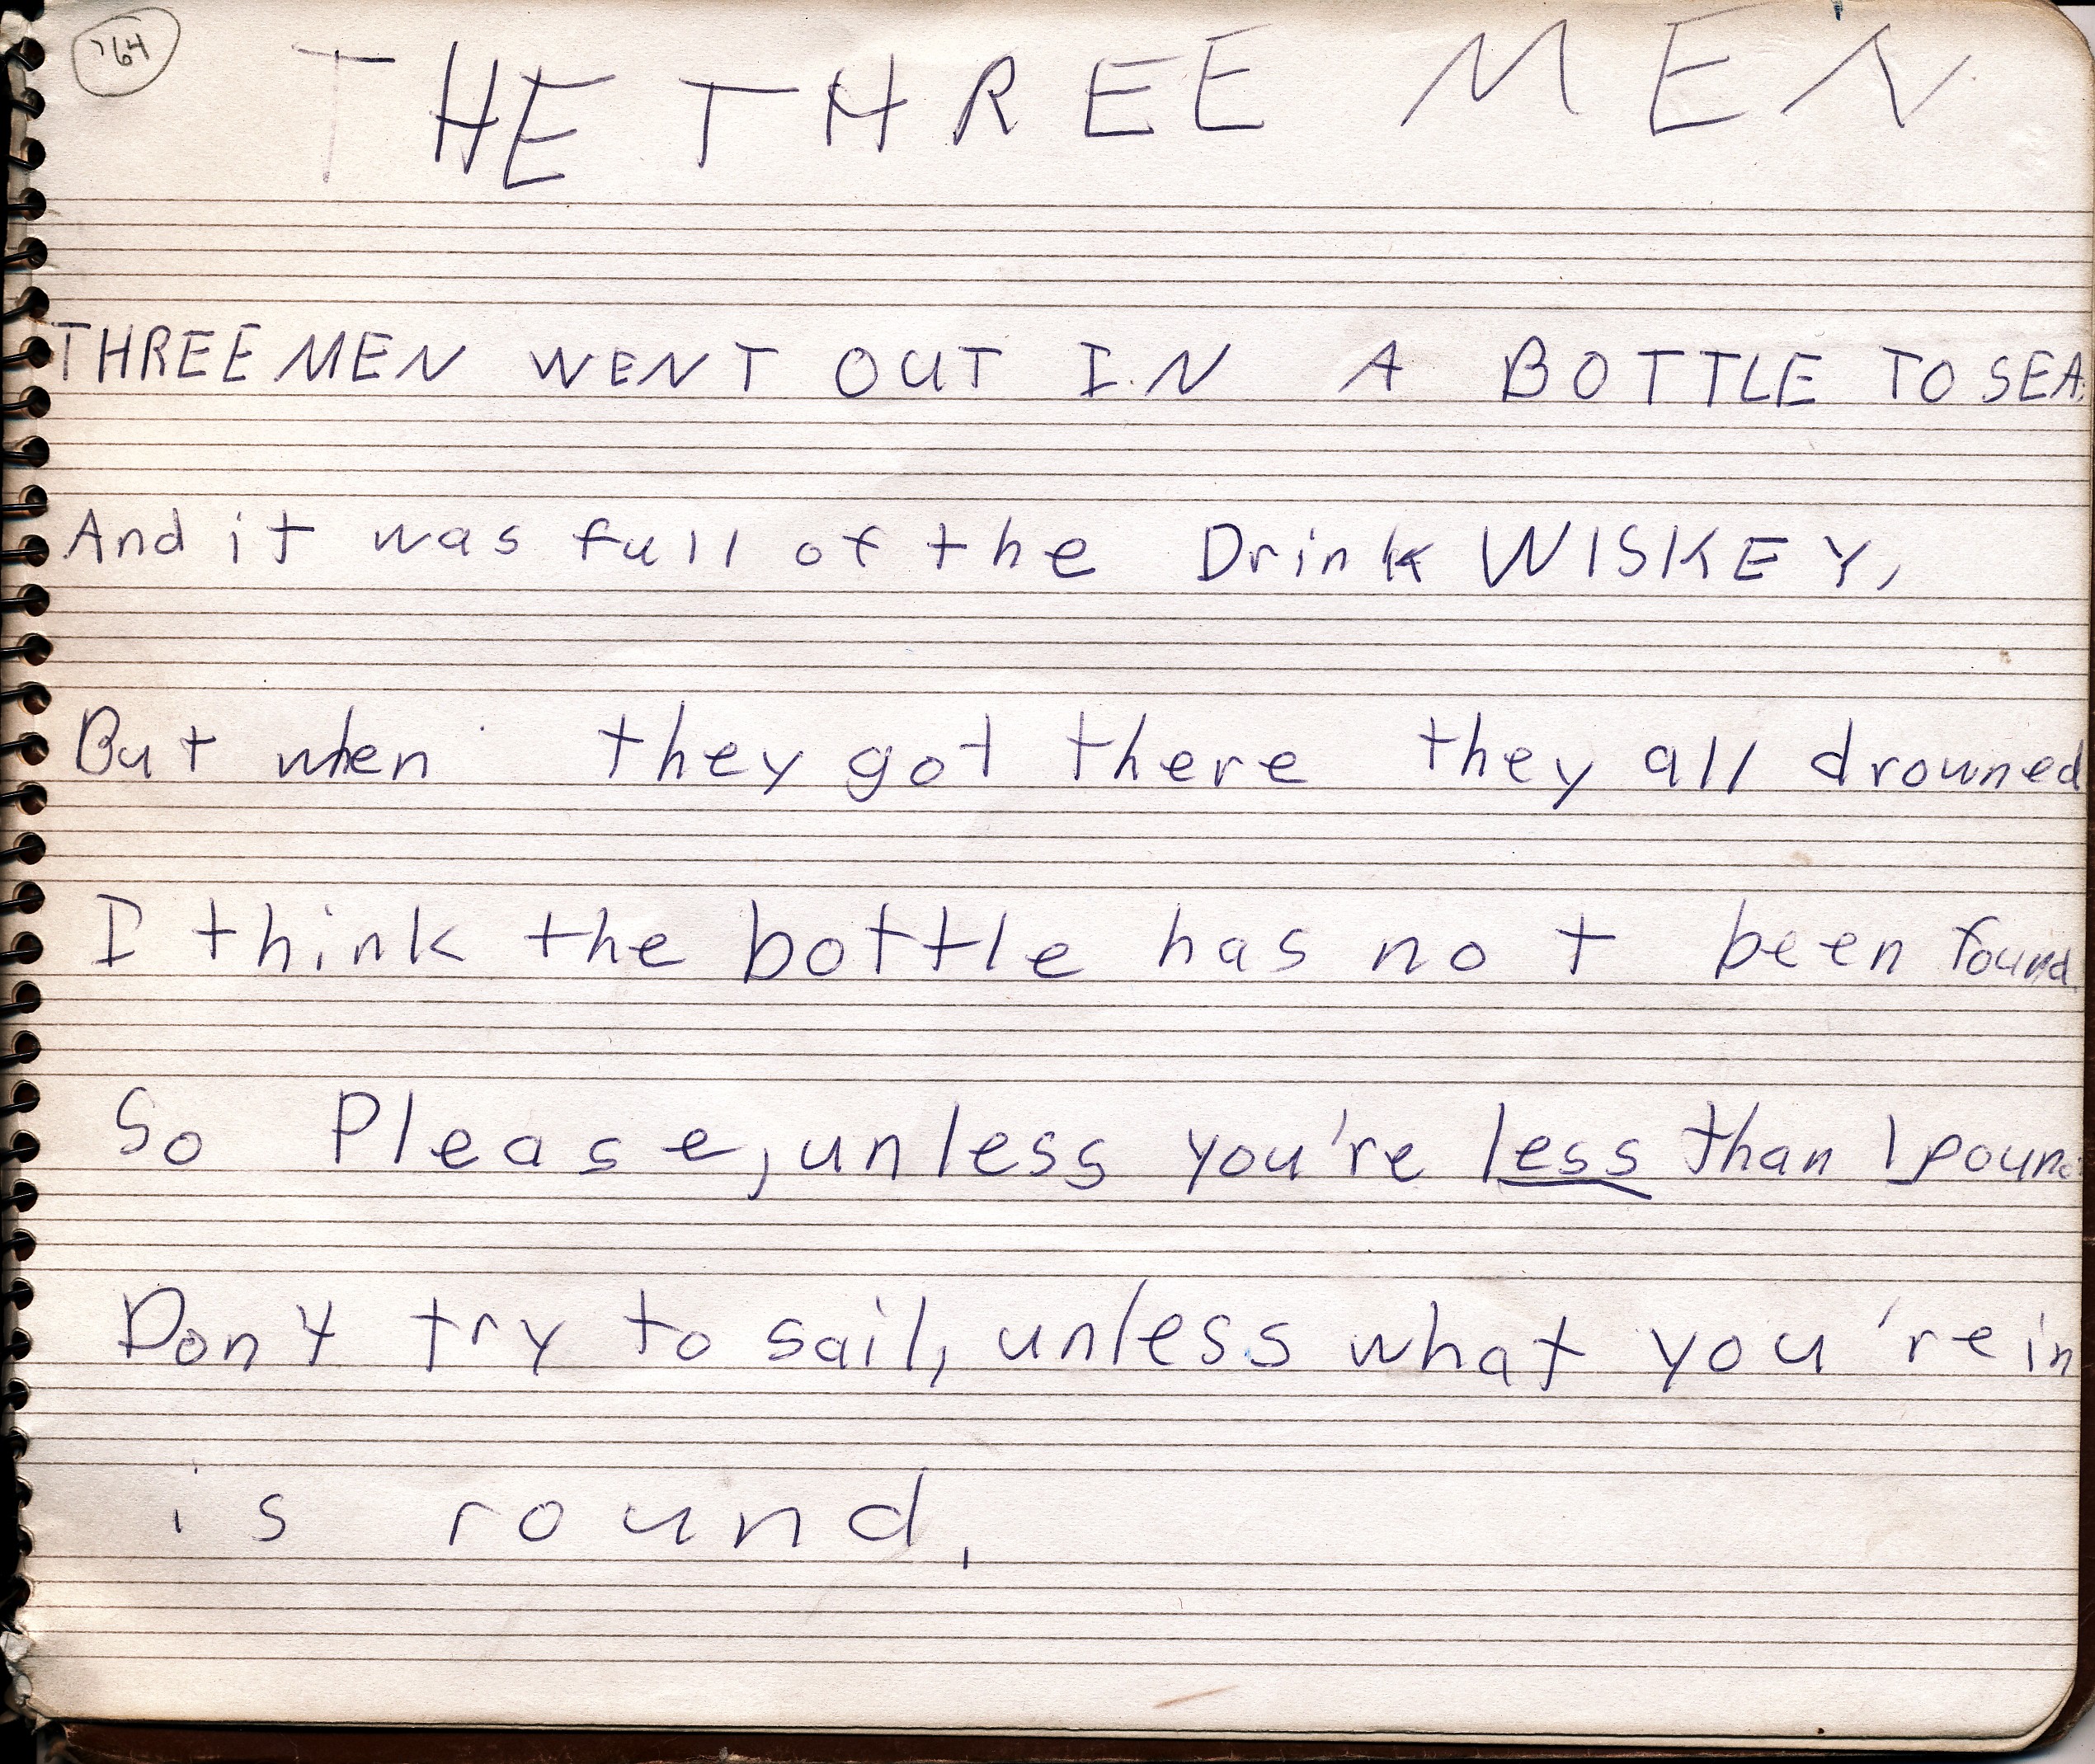 '64
THE THREE MEN
THREE MEN WENT OUT IN A BOTTLE TO SEA.
And it was full of the Drink WISKEY,
But when they got there they all drowned
I think the bottle has not been found.
So Please, unless you're less than 1 pound
Don't try to sail, unless what you're in
is round.